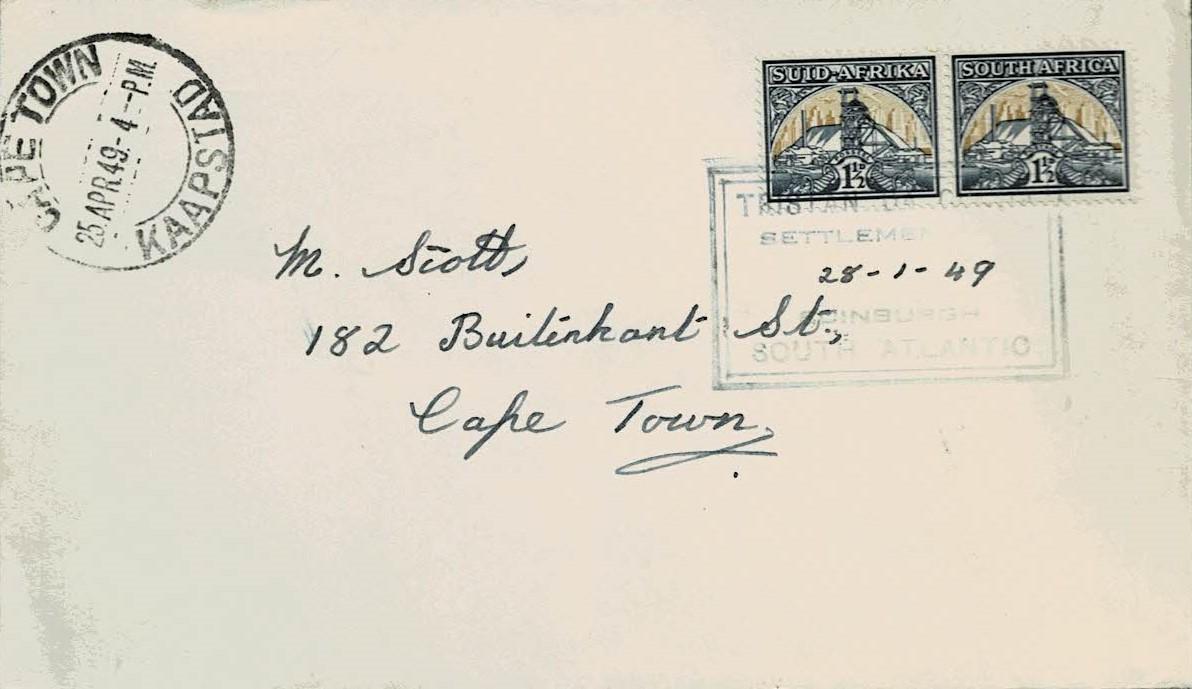 CAPE TOWN
25 APR 49 - 4 - P.M.
KAAPSTAD
SUID-AFRIKA
1½D
SOUTH AFRICA
1½D
TRISTAN DA
SETTLEMEN
28-1-49
EDINBURGH
SOUTH ATLANTIC
M. Scott,
182 Buitenkant St.,
Cape Town.